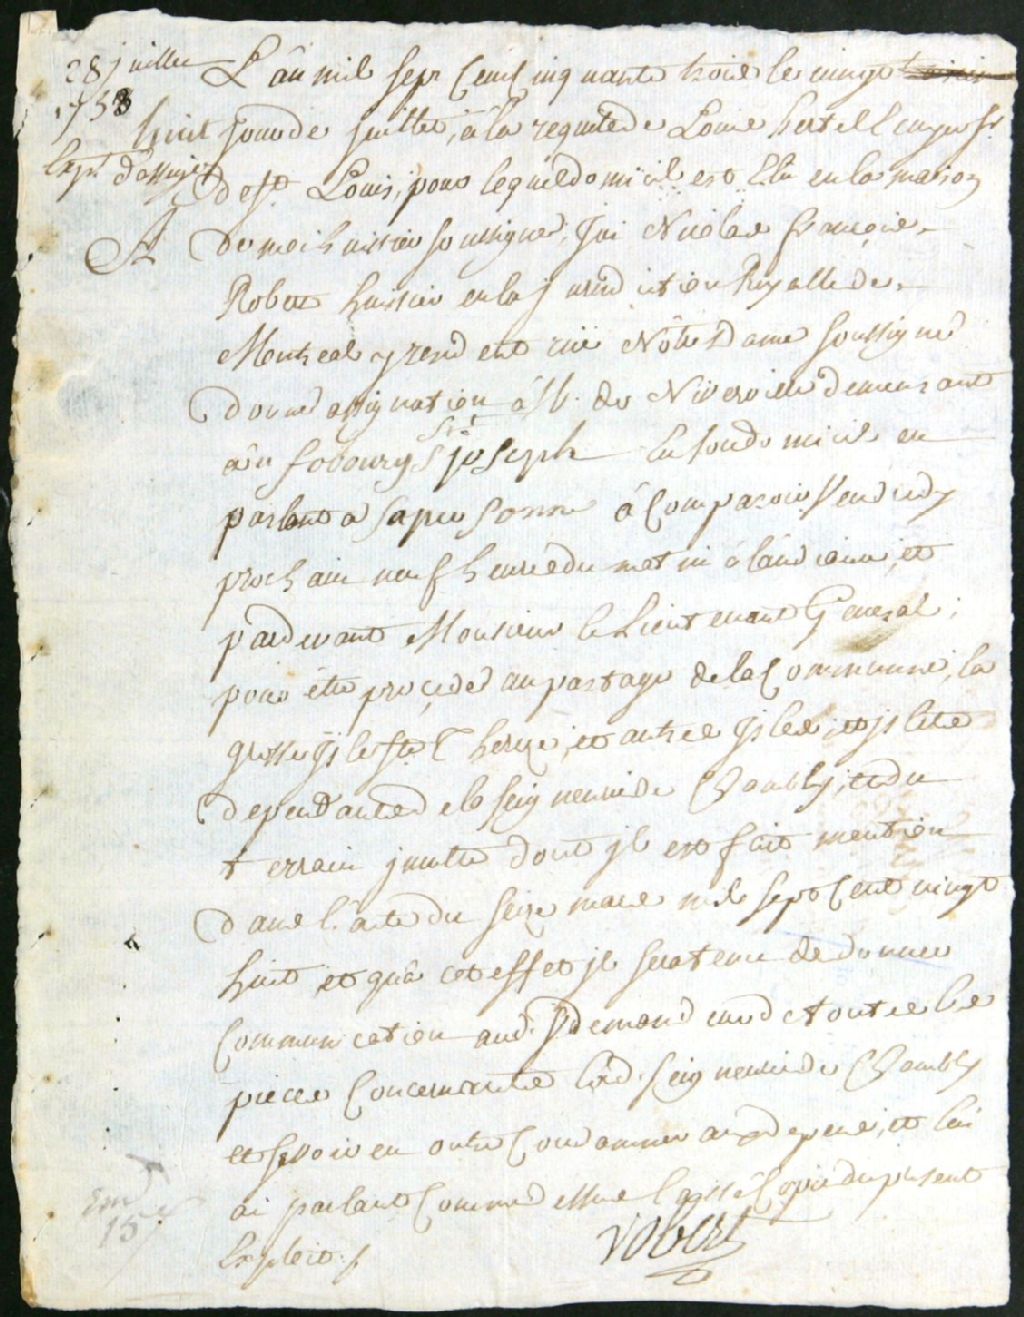 28 juillet
1753
Exp. d'assig.on
A
L'an mil sept Cent Cinquante trois le vingt
huit Jour de juillet, à la requete de Louis hertel Ecuyer Sr
de St Louis, pour lequel domicil est Elu en la maison
de moi huissier soussigné, J'ai Nicolas françois
Robert huissier en la jurisdiction Royalle de
Montreal y resident ruë Nôtre Dame soussigné
donné assignation à M. de Niverville demeurant
aŭ fobourg St joseph En son domicil en
parlant à sa personne à Comparoir Vendredy
prochain neuf heures du matin à l'audience, et
pardevant Monsieur le Lieutenant General;
pour être procedé au partage de la Commune, la
grosse isle Ste Therese, et autres isles et islets
dependantes de la Seigneurie de Chambly, et du
terrain dont il est fait mention
dans l'acte du seize mars mil sept Cent vingt
huit et qu'à cet effet il sera tenu de donner
Communication aud. Sr demandeur de toutes les
pieces Concernante lad. Seigneurie de Chambly
et se voir en outre Condamner aux depens, et lui
ai parlant Comme dessus laissé Copie du present
Exploit
Robert
15